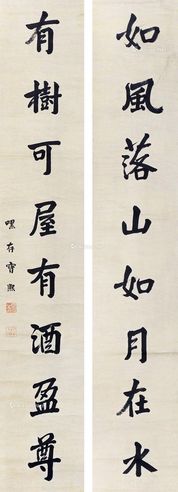 如風落山如月在水
有樹可屋有酒盈尊
寶熙